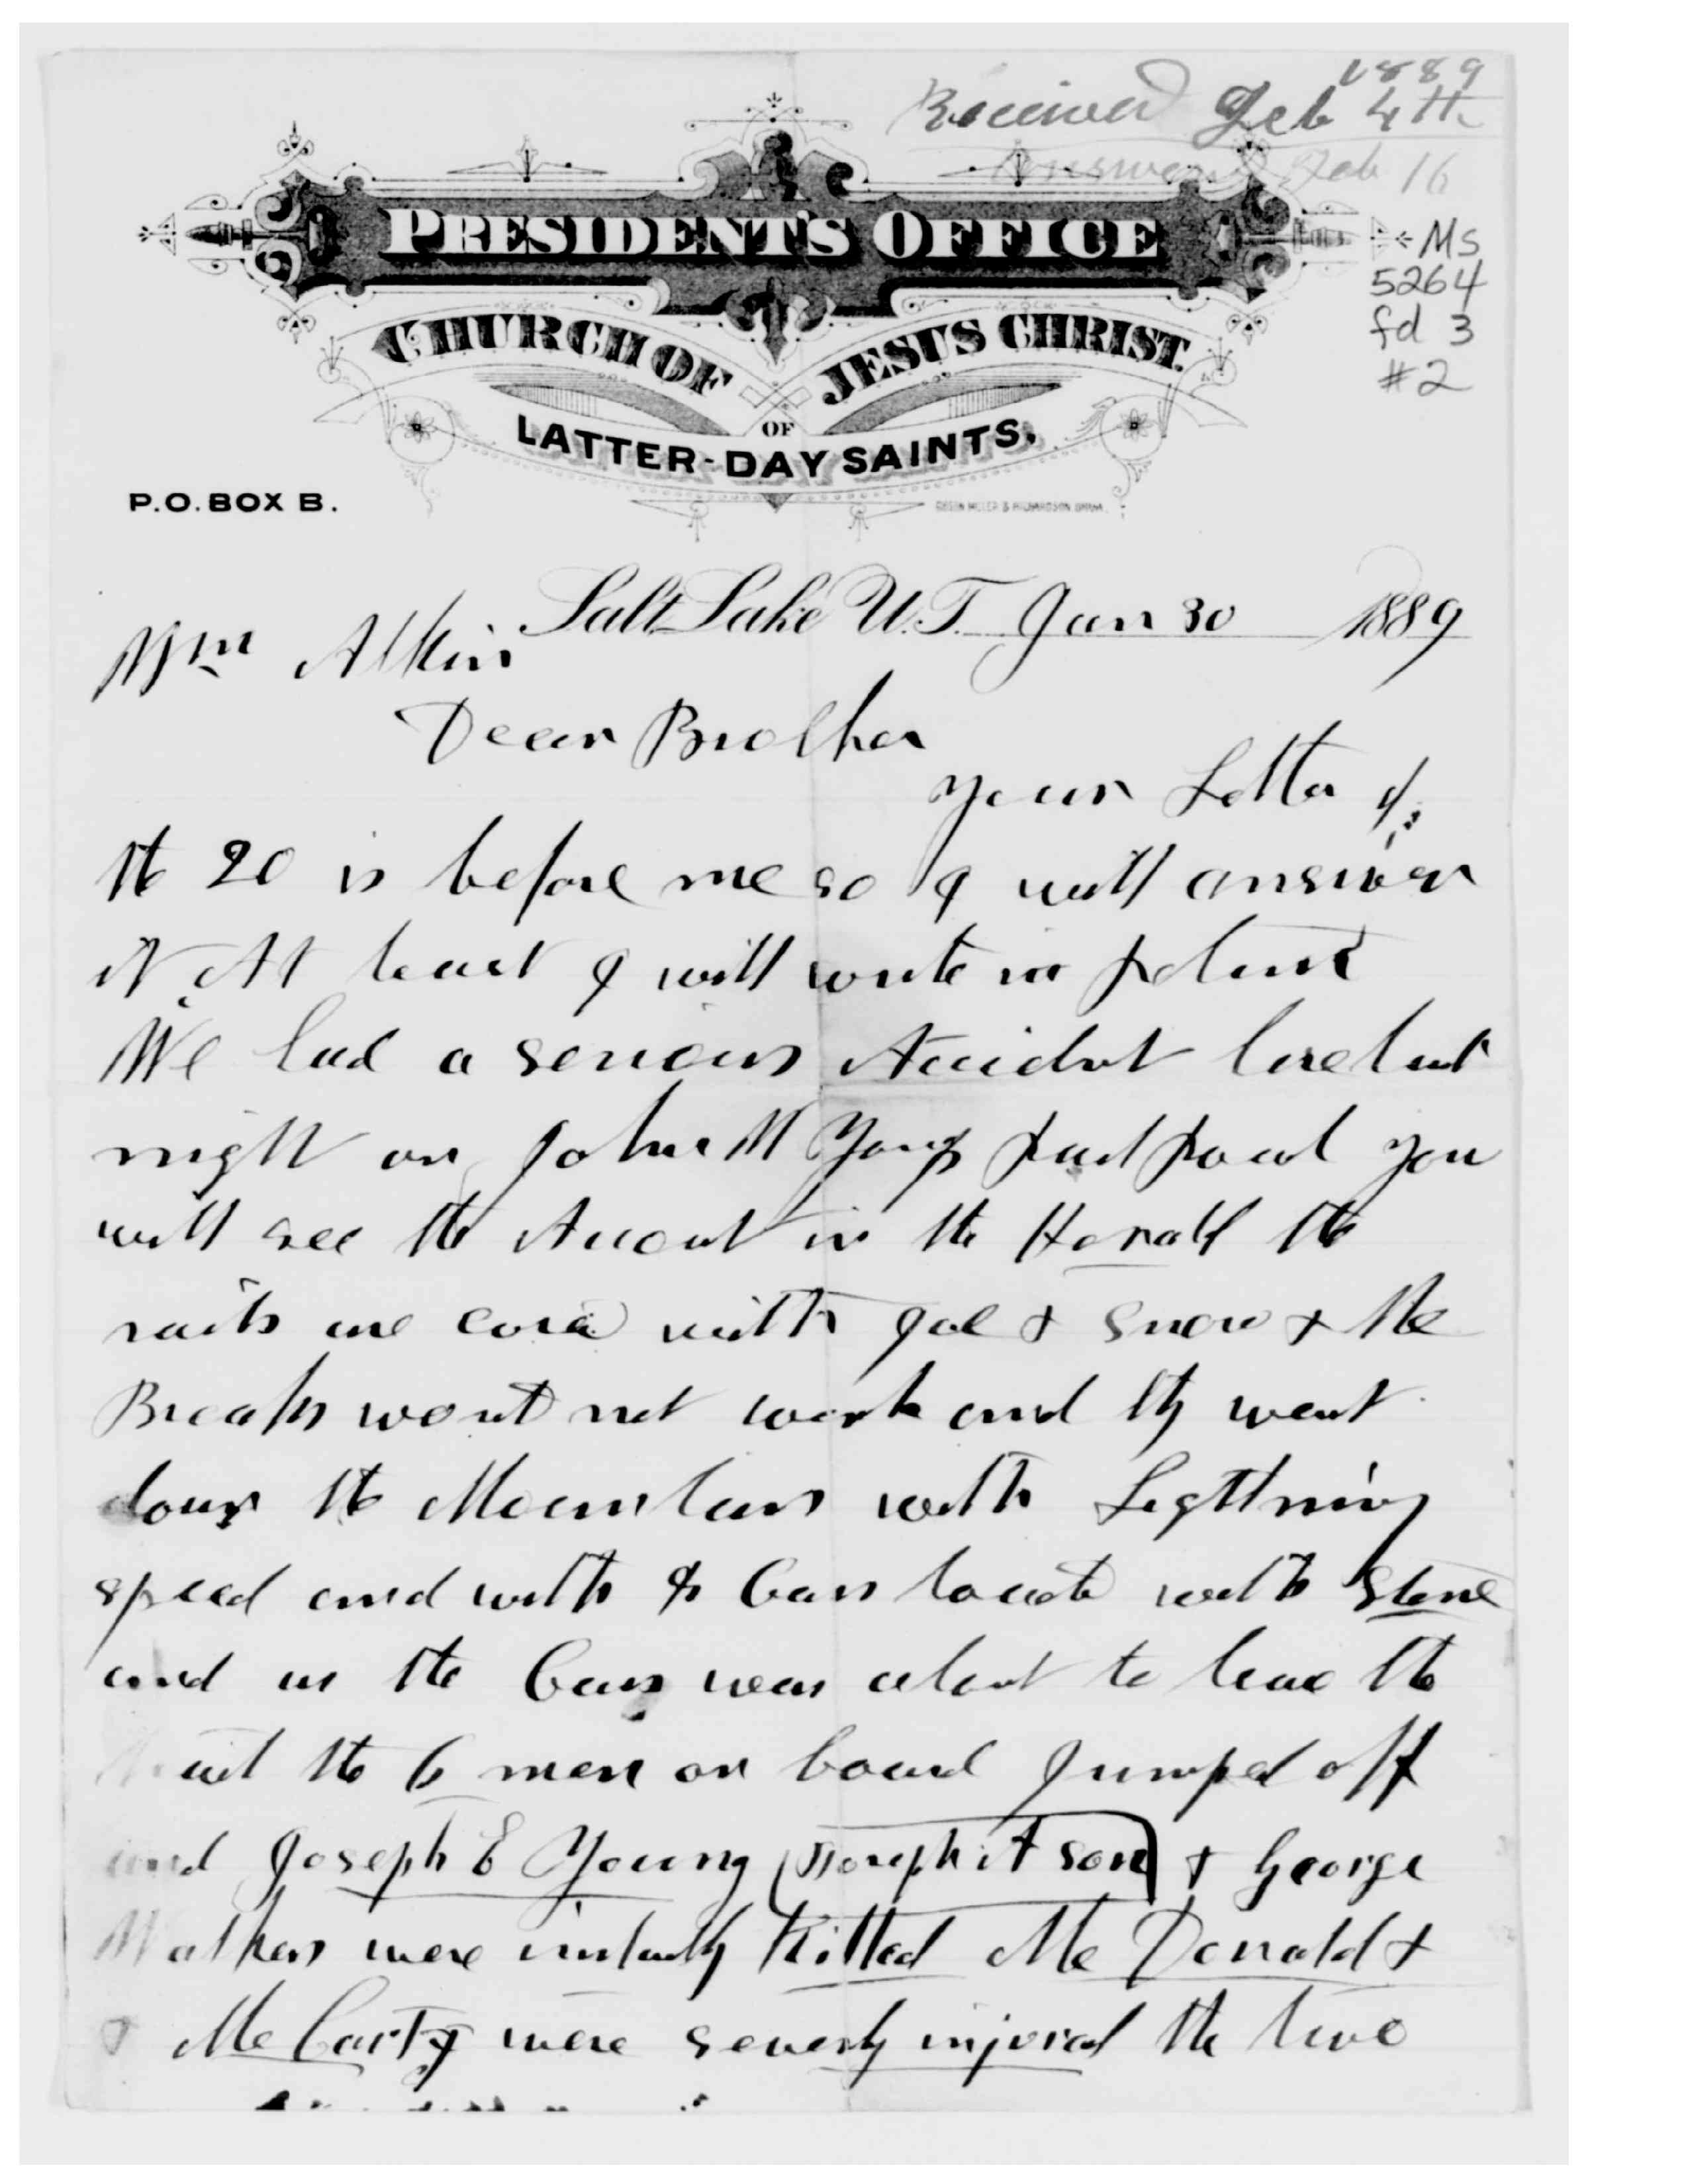 1889
Received Feb 4th
Answered Feb 16
PRESIDENT'S OFFICE
Ms
5264
fd 3
#2
CHURCH OF JESUS CHRIST
OF
LATTER-DAY SAINTS.
P.O. BOX B.
Salt Lake U.T. Jan 30 1889
Wm Atkin
Dear Brother
your Letter of
the 20 is before me so I will answer
it At least I will write in
We had a serious Accident here last
night on John W Youngs you
will see the Account in the Herald the
rails with Ice & snow & the
Breaks would not work and they went
down the Mountain with Ligthning
speed and with Cars with stone
and as the Cars wear about to leave the
the 6 men on board Jumped off
and Joseph E Young (Joseph A son) & George
were instantly Killed Mc Donald &
& Mc Carty were severly injured the two